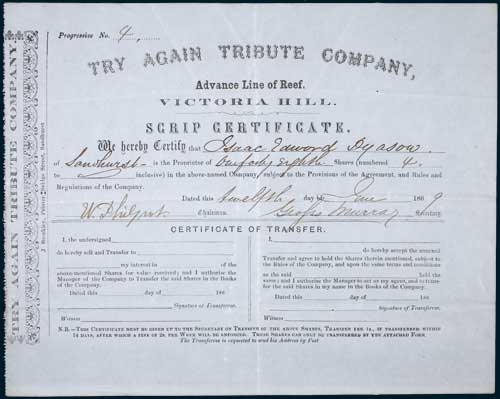 Progressive No. 4
TRY AGAIN TRIBUTE COMPANY,
Advance Line of Reef,
VICTORIA HILL.
SCRIP CERTIFICATE.
We hereby Certify that Isaac Edward Dyason
of Sandhurst is the Proprietor of One forty eighth Shares (numbered 4
to inclusive) in the above-named Company, subject to the Provisions of the Agreement, and Rules and
Regulations of the Company.
Dated this twelfth day of June 1869
W. Philpot Chairman. Murray
CERTIFICATE OF TRANSFER.
I, the undersigned
do hereby sell and Transfer to
my interest in of the
above-mentioned Shares for value received; and I authorise the
Manager of the Company to Transfer the said Shares in the Books
of the Company.
Dated this day of 186
Signature of Transferror.
Witness
I,
do hereby accept the annexed
Transfer and agree to hold the Shares therein mentioned, subject to
the Rules of the Company, and upon the same terms and conditions
as the said held the
same; and I authorise the Manager to set as my agent, and to transfer the said Shares in my name in the Books of the Company.
Dated this day of 186
Signature of Transferree.
Witness
N.B.—THIS CERTIFICATE MUST BE GIVEN UP TO THE SECRETARY ON TRANSFER OF THE ABOVE SHARES, TRANSFER FEE 1s., IF TRANSFERRED WITHIN
14 DAYS, AFTER WHICH A FINE OF 2s. PER WEEK WILL BE ENFORCED. THESE SHARES CAN ONLY BE TRANSFERRED BY YOU ATTACHED FORM.
The Transferree is requested to send his Address by Post
TRY AGAIN TRIBUTE COMPANY.
Printer, Bridge Street, Sandhurst